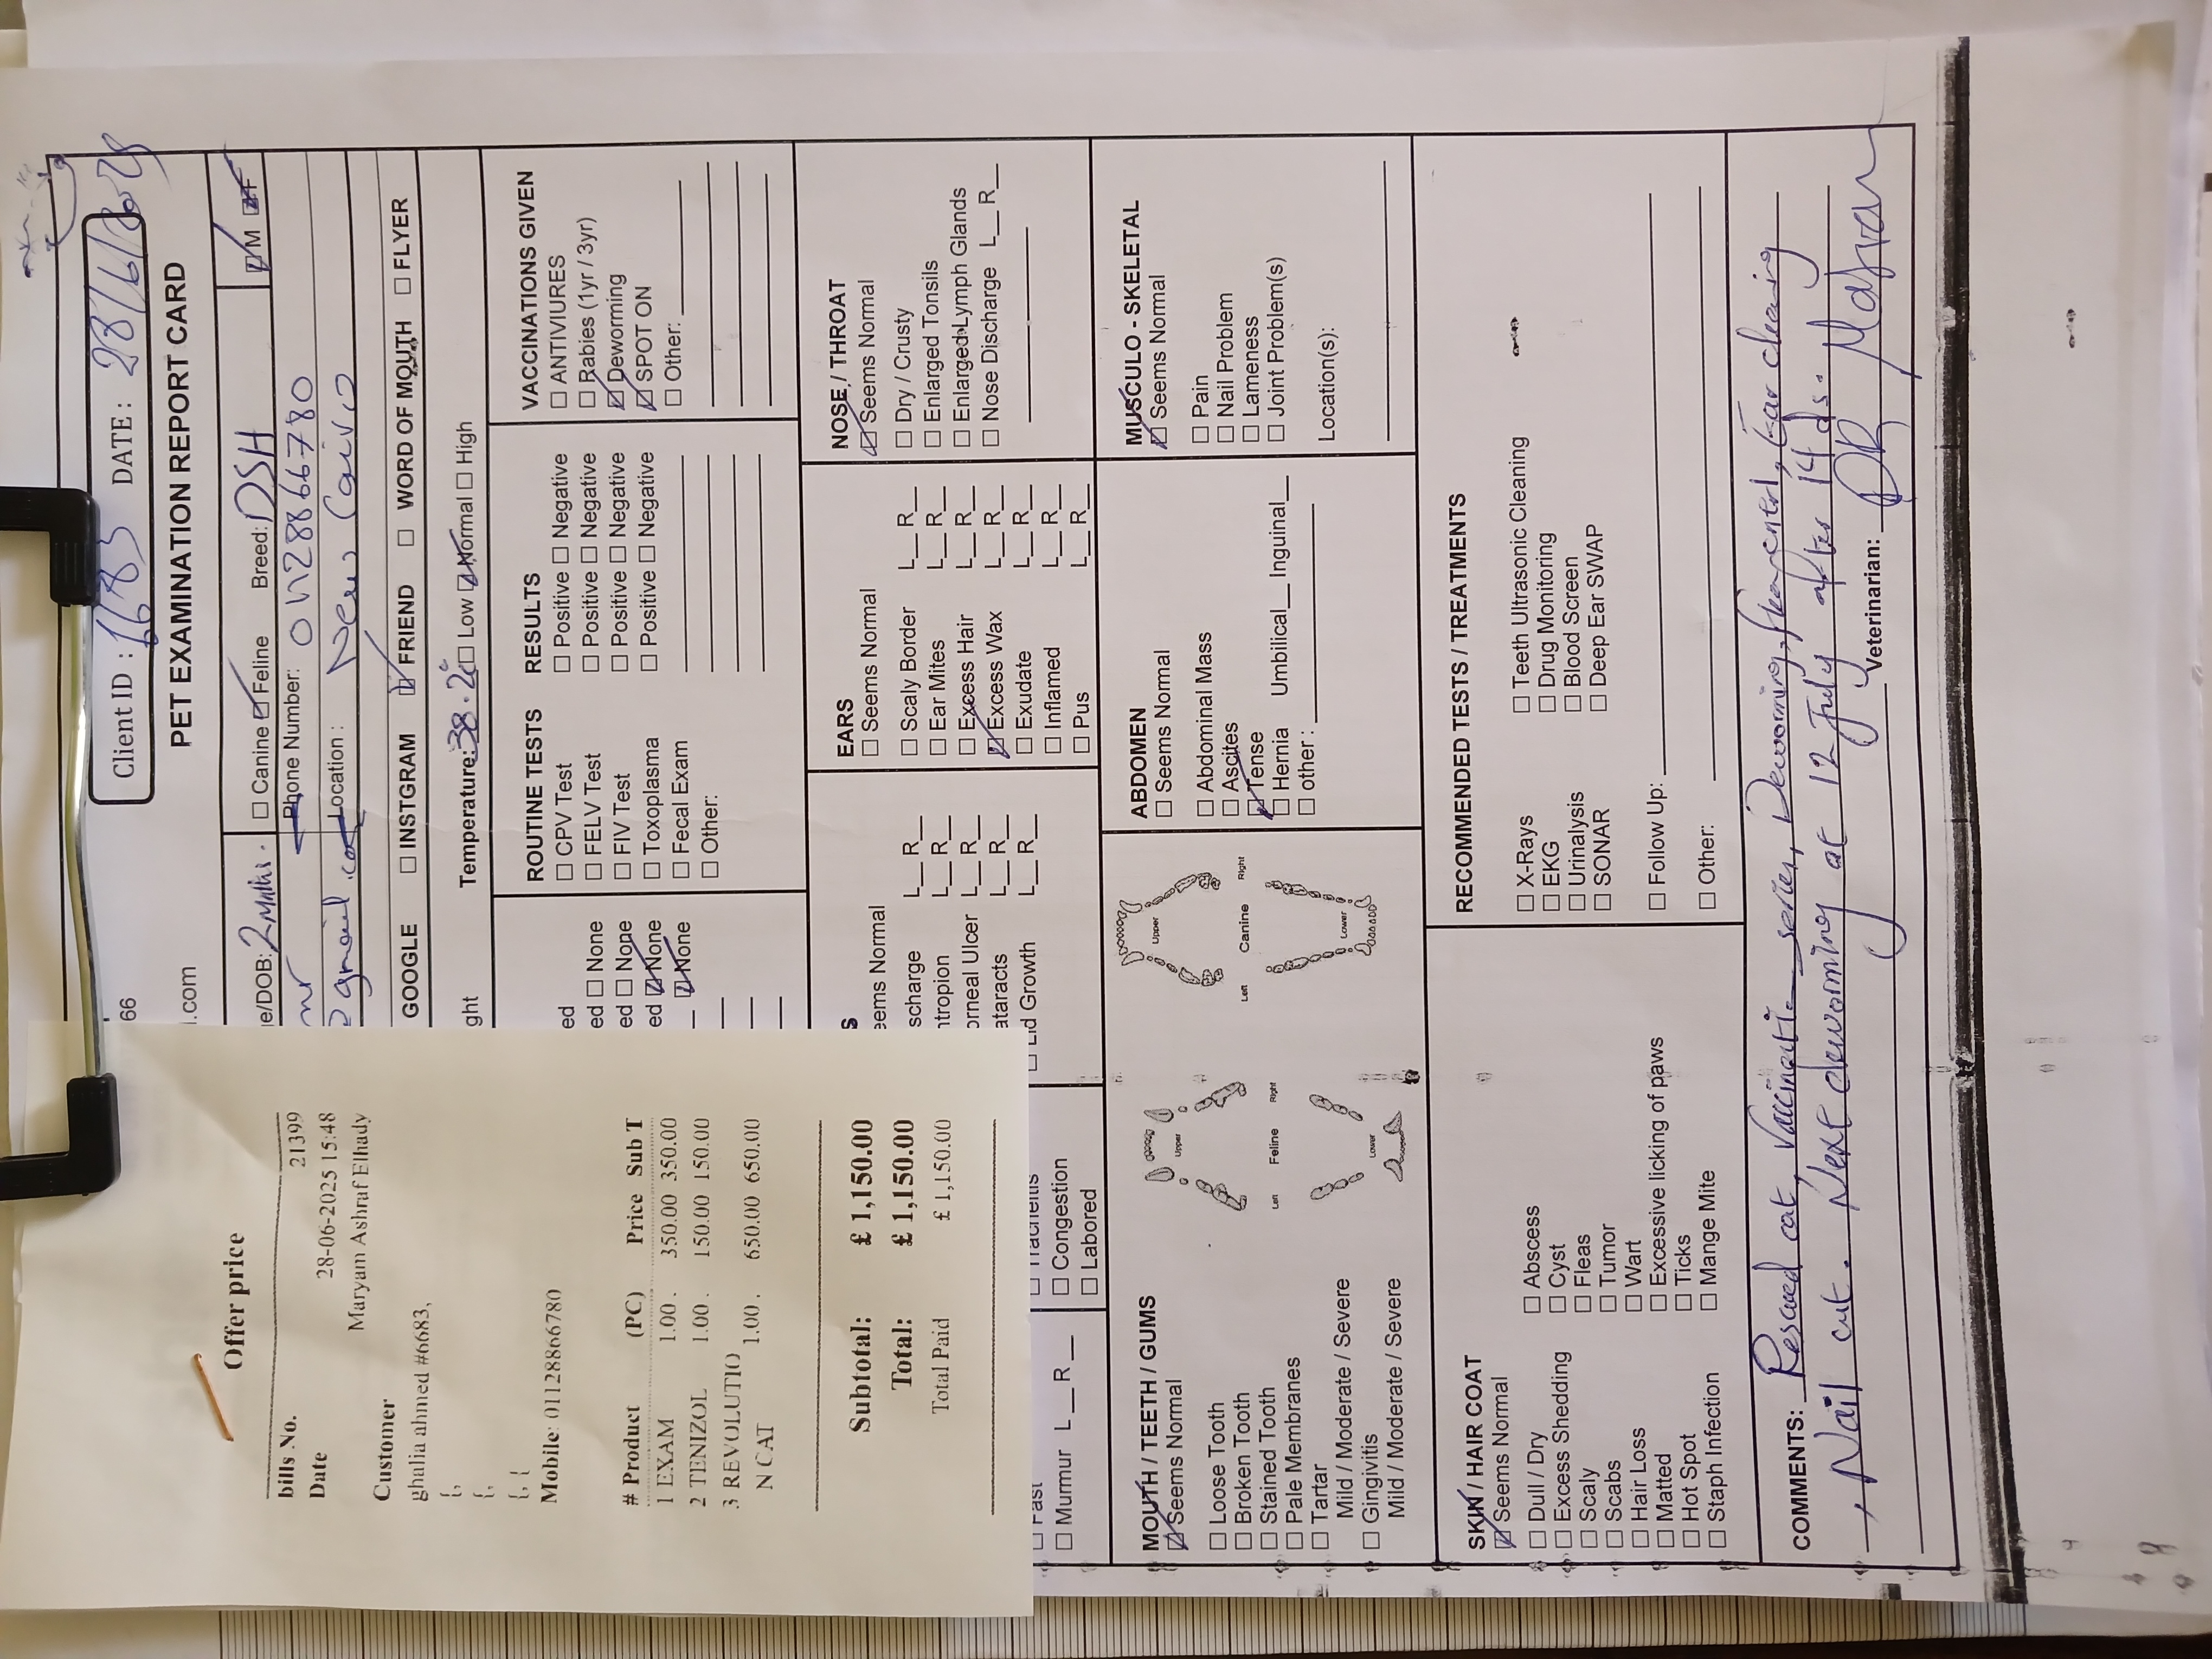 Offer price
bills No. 21399
Date 28-06-2025 15:48
Maryam Ashraf Elhady
Customer
ghalia ahmed #6683,
{,
{,
{, {
Mobile: 01128866780
# Product (PC) Price Sub T
1 EXAM 1.00 . 350.00 350.00
2 TENIZOL 1.00 . 150.00 150.00
3 REVOLUTIO
N CAT 1.00 . 650.00 650.00
Subtotal: £ 1,150.00
Total: £ 1,150.00
Total Paid £ 1,150.00
Client ID : 6683 DATE : 28/6/2025
66
PET EXAMINATION REPORT CARD
l.com
e/DOB: 2 Mnth. ☐ Canine ☑ Feline Breed: DSH ☑ M ☑ F
Phone Number: 01128866780
gmail.com Location : New Cairo
GOOGLE ☐ INSTGRAM ☑ FRIEND ☐ WORD OF MOUTH ☐ FLYER
ght Temperature: 38.2c° ☐ Low ☑ Normal ☐ High
ed ☐ None
ed ☐ None
ed ☑ None
☑ None
ROUTINE TESTS RESULTS
☐ CPV Test ☐ Positive ☐ Negative
☐ FELV Test ☐ Positive ☐ Negative
☐ FIV Test ☐ Positive ☐ Negative
☐ Toxoplasma ☐ Positive ☐ Negative
☐ Fecal Exam
☐ Other:
VACCINATIONS GIVEN
☐ ANTIVIURES
☐ Rabies (1yr / 3yr)
☑ Deworming
☑ SPOT ON
☐ Other:
☐ Fast
☐ Murmur L__R__
☐ Tracheitis
☐ Congestion
☐ Labored
S
eems Normal
scharge L__R__
ntropion L__R__
orneal Ulcer L__R__
ataracts L__R__
☐ Lid Growth L__R__
EARS
☐ Seems Normal
☐ Scaly Border L__R__
☐ Ear Mites L__R__
☐ Excess Hair L__R__
☑ Excess Wax L__R__
☐ Exudate L__R__
☐ Inflamed L__R__
☐ Pus L__R__
NOSE / THROAT
☑ Seems Normal
☐ Dry / Crusty
☐ Enlarged Tonsils
☐ Enlarged Lymph Glands
☐ Nose Discharge L__R__
MOUTH / TEETH / GUMS
☑ Seems Normal
☐ Loose Tooth
☐ Broken Tooth
☐ Stained Tooth
☐ Pale Membranes
☐ Tartar
Mild / Moderate / Severe
☐ Gingivitis
Mild / Moderate / Severe
Upper
Left Feline Right
Lower
Upper
Left Canine Right
Lower
ABDOMEN
☐ Seems Normal
☐ Abdominal Mass
☐ Ascites
☑ Tense
☐ Hernia Umbilical__ Inguinal__
☐ other :
MUSCULO - SKELETAL
☑ Seems Normal
☐ Pain
☐ Nail Problem
☐ Lameness
☐ Joint Problem(s)
Location(s):
SKIN / HAIR COAT
☑ Seems Normal
☐ Dull / Dry
☐ Excess Shedding
☐ Scaly
☐ Scabs
☐ Hair Loss
☐ Matted
☐ Hot Spot
☐ Staph Infection
☐ Abscess
☐ Cyst
☐ Fleas
☐ Tumor
☐ Wart
☐ Excessive licking of paws
☐ Ticks
☐ Mange Mite
RECOMMENDED TESTS / TREATMENTS
☐ X-Rays
☐ EKG
☐ Urinalysis
☐ SONAR
☐ Teeth Ultrasonic Cleaning
☐ Drug Monitoring
☐ Blood Screen
☐ Deep Ear SWAP
☐ Follow Up:
☐ Other:
COMMENTS: Rescued cat, Deworming, Ear cleaning
+ Nail cut. Next deworming at 12 July after 14 ds.
Veterinarian: DR